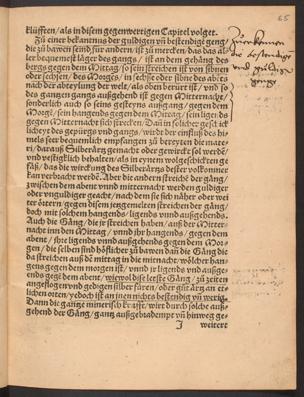 65
klüfften / als in disem gegenwertigen Capitel volget.
Zů einer bekantnus der guldigen vñ bestendige geng
die zů bawen seind für andern / ist zů mercken / das das al-
ler bequemest läger des gangs / ist an dem gehäng des
bergs gegen dem Mittag / so sein streichen ist von siben
oder sechsen / des Morgēs / in sechse oder sibne des abēts
nach der abteylung der welt / als oben berürt ist / vnd so
des gantzen gangs außgehend ist gegen Mitternacht /
sonderlich auch so seins gesteyns außgang / gegen dem
Morgē / sein hangends gegen dem Mittag / sein ligends
gegen Mitternacht sich strecket / Dañ in solcher geschick
licheyt des gepürgs vnd gangs / wirdt der einfluß des hi-
mels seer bequemlich empfangen zů bereyten die mate-
ri / darauß Silberärtz gemacht oder gewirckt sol werdē /
vnd vestigklich behalten / als in eynem wolgeschickten ge
fäß / das die wirckung des Silberärtz dester volkommer
kan verbracht werdē. Aber die andern streichē der gäng /
zwischen dem abent vnnd mitternacht werden guldiger
oder vnguldiger geacht / nach dem sie sich näher oder wei
ter ötern / gegen disem jetzgemelten streichen der gäng /
doch mit solchem hangends / ligends vnnd außgehends.
Auch die Gäng / die jr streichen haben / auß der Mitter-
nacht inn den Mittag / vnnd jhr hangends / gegen dem
abent / jhre ligends vnnd außgehends gegen dem Mor-
gen / die selben sind höflicher zů bawen dañ die Gäng die
da streichen auß dē mittag in die mitnacht / wölcher han-
gens gegen dem morgen ist / vnnd jr ligends vnd außge-
ends gegē dem abent / wiewol dise letste Gäng / zů zeiten
angeflogen vnd gedigen silber füren / oder gůt ärtz an et-
lichen orten / yedoch ist an jnen nichts bestendig vñ wenig.
Dann die gantze minerisch krafft / wirt durch solche auß-
gehend der Gäng / gantz außgebiadempt vñ hinweg ge-
J weitert